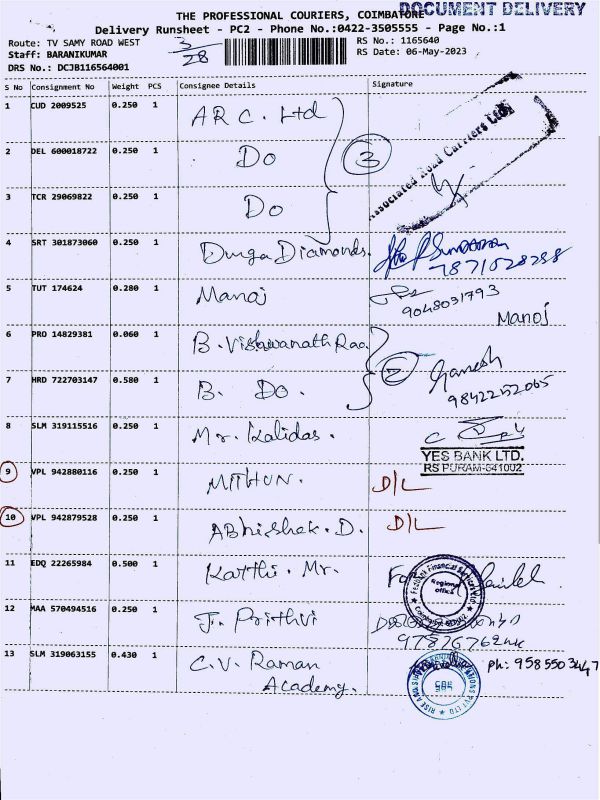 DOCUMENT DELIVERY
THE PROFESSIONAL COURIERS, COIMBATORE
Delivery Runsheet - PC2 - Phone No.:0422-3505555 - Page No.:1
Route: TV SAMY ROAD WEST 3/28 RS No.: 1165640
Staff: BARANIKUMAR RS Date: 06-May-2023
DRS No.: DCJB116564001
S No Consignment No Weight PCS Consignee Details Signature
1 CUD 2009525 0.250 1 ARC. Ltd
Associated Road Carriers Ltd
2 DEL 600018722 0.250 1 Do 3
3 TCR 29069822 0.250 1 Do
4 SRT 301873060 0.250 1 Durga Diamonds.
7871028288
5 TUT 174624 0.280 1 Manoj
9048031793
Manoj
6 PRO 14829381 0.060 1 B. Vishwanath Rao.
2 Ganesh
7 HRD 722703147 0.580 1 B. Do.
9842252065
8 SLM 319115516 0.250 1 Mr. Kalidas.
YES BANK LTD.
RS PURAM-641002
9 VPL 942880116 0.250 1 MITHUN. D/L
10 VPL 942879528 0.250 1 ABhishek. D. D/L
11 EDQ 22265984 0.500 1 Karthi. Mr. For
Regional Office
12 MAA 570494516 0.250 1 J. Prithvi
13 SLM 319063155 0.430 1 C.V. Raman
Academy.
Ph: 9585503447